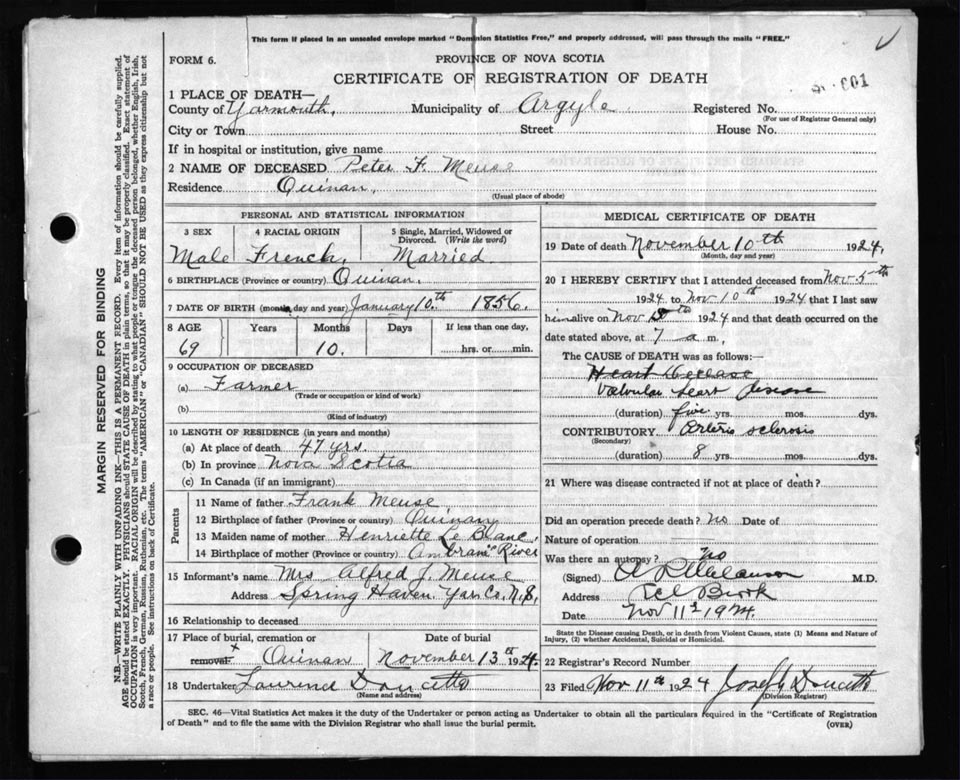 This form if placed in an unsealed envelope marked "Dominion Statistics Free," and properly addressed, will pass through the mails "FREE."
FORM 6.
PROVINCE OF NOVA SCOTIA
CERTIFICATE OF REGISTRATION OF DEATH
601
1 PLACE OF DEATH—
County of Yarmouth, Municipality of Argyle Registered No.
(For use of Registrar General only)
City or Town Street House No.
If in hospital or institution, give name
2 NAME OF DECEASED Peter F. Meuse
Residence Quinan,
(Usual place of abode)
PERSONAL AND STATISTICAL INFORMATION
3 SEX 4 RACIAL ORIGIN 5 Single, Married, Widowed or Divorced. (Write the word)
Male French, Married.
6 BIRTHPLACE (Province or country) Quinan.
7 DATE OF BIRTH (month, day and year) January 10th 1856.
8 AGE Years Months Days If less than one day,
69 10. hrs. or min.
9 OCCUPATION OF DECEASED
(a) Farmer
(Trade or occupation or kind of work)
(b)
(Kind of industry)
10 LENGTH OF RESIDENCE (in years and months)
(a) At place of death 47 yrs.
(b) In province Nova Scotia
(c) In Canada (if an immigrant)
Parents
11 Name of father Frank Meuse
12 Birthplace of father (Province or country) Quinan
13 Maiden name of mother Henriette Le Blanc,
14 Birthplace of mother (Province or country) River
15 Informant's name Mrs Alfred J. Meuse
Address Spring Haven. Yar. Co. N.S,
16 Relationship to deceased
17 Place of burial, cremation or removal x Date of burial
Quinan November 13th 1924.
18 Undertaker Laurence Doucette
(Name and address)
MEDICAL CERTIFICATE OF DEATH
19 Date of death November 10th 1924,
(Month, day and year)
20 I HEREBY CERTIFY that I attended deceased from Nov 5th
1924 to Nov 10th 1924 that I last saw
him alive on Nov th 1924 and that death occurred on the
date stated above, at 7 a m.,
The CAUSE of DEATH was as follows:—
Heart Decease
Valvular heart disease
(duration) five yrs. mos. dys.
CONTRIBUTORY Arterio sclerosis
(Secondary)
(duration) 8 yrs. mos. dys.
21 Where was disease contracted if not at place of death?
Did an operation precede death? no Date of
Nature of operation
Was there an autopsy? no
(Signed) Melanson M.D.
Address Eel Brook
Date Nov 11th 1924.
State the Disease causing Death, or in death from Violent Causes, state (1) Means and Nature of
Injury, (2) whether Accidental, Suicidal or Homicidal.
22 Registrar's Record Number
23 Filed Nov 11th 1924 Joseph Doucette
(Division Registrar)
SEC. 46—Vital Statistics Act makes it the duty of the Undertaker or person acting as Undertaker to obtain all the particulars required in the "Certificate of Registration
of Death" and to file the same with the Division Registrar who shall issue the burial permit.
(OVER)
MARGIN RESERVED FOR BINDING
N.B.—WRITE PLAINLY WITH UNFADING INK—THIS IS A PERMANENT RECORD. Every item of information should be carefully supplied.
AGE should be stated EXACTLY. PHYSICIANS should STATE CAUSE OF DEATH in plain terms, so that it may be properly classified. Exact statement of
OCCUPATION is very important. RACIAL ORIGIN will be described by stating to what people or tongue the deceased person belonged, whether English, Irish,
Scotch, French, German, Russian, Ruthenian, etc. The terms "AMERICAN" or "CANADIAN" SHOULD NOT BE USED as they express citizenship but not
a race or people. See instructions on back of Certificate.